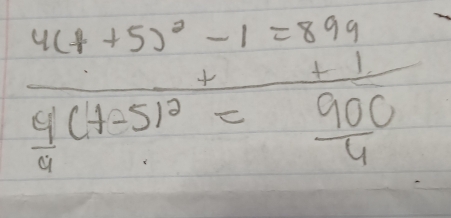 4(t + 5)² - 1 = 899
+ + 1
4(t - 5)² = 900
4 4